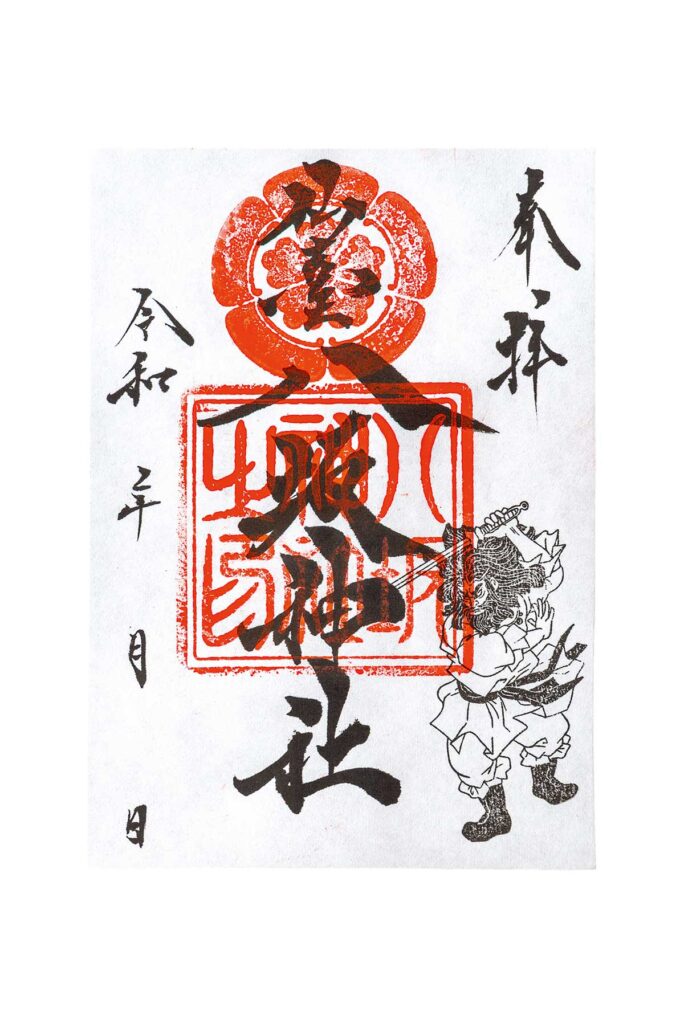 奉拝
八坂神社
八坂
神社
之印
令和 年 月 日